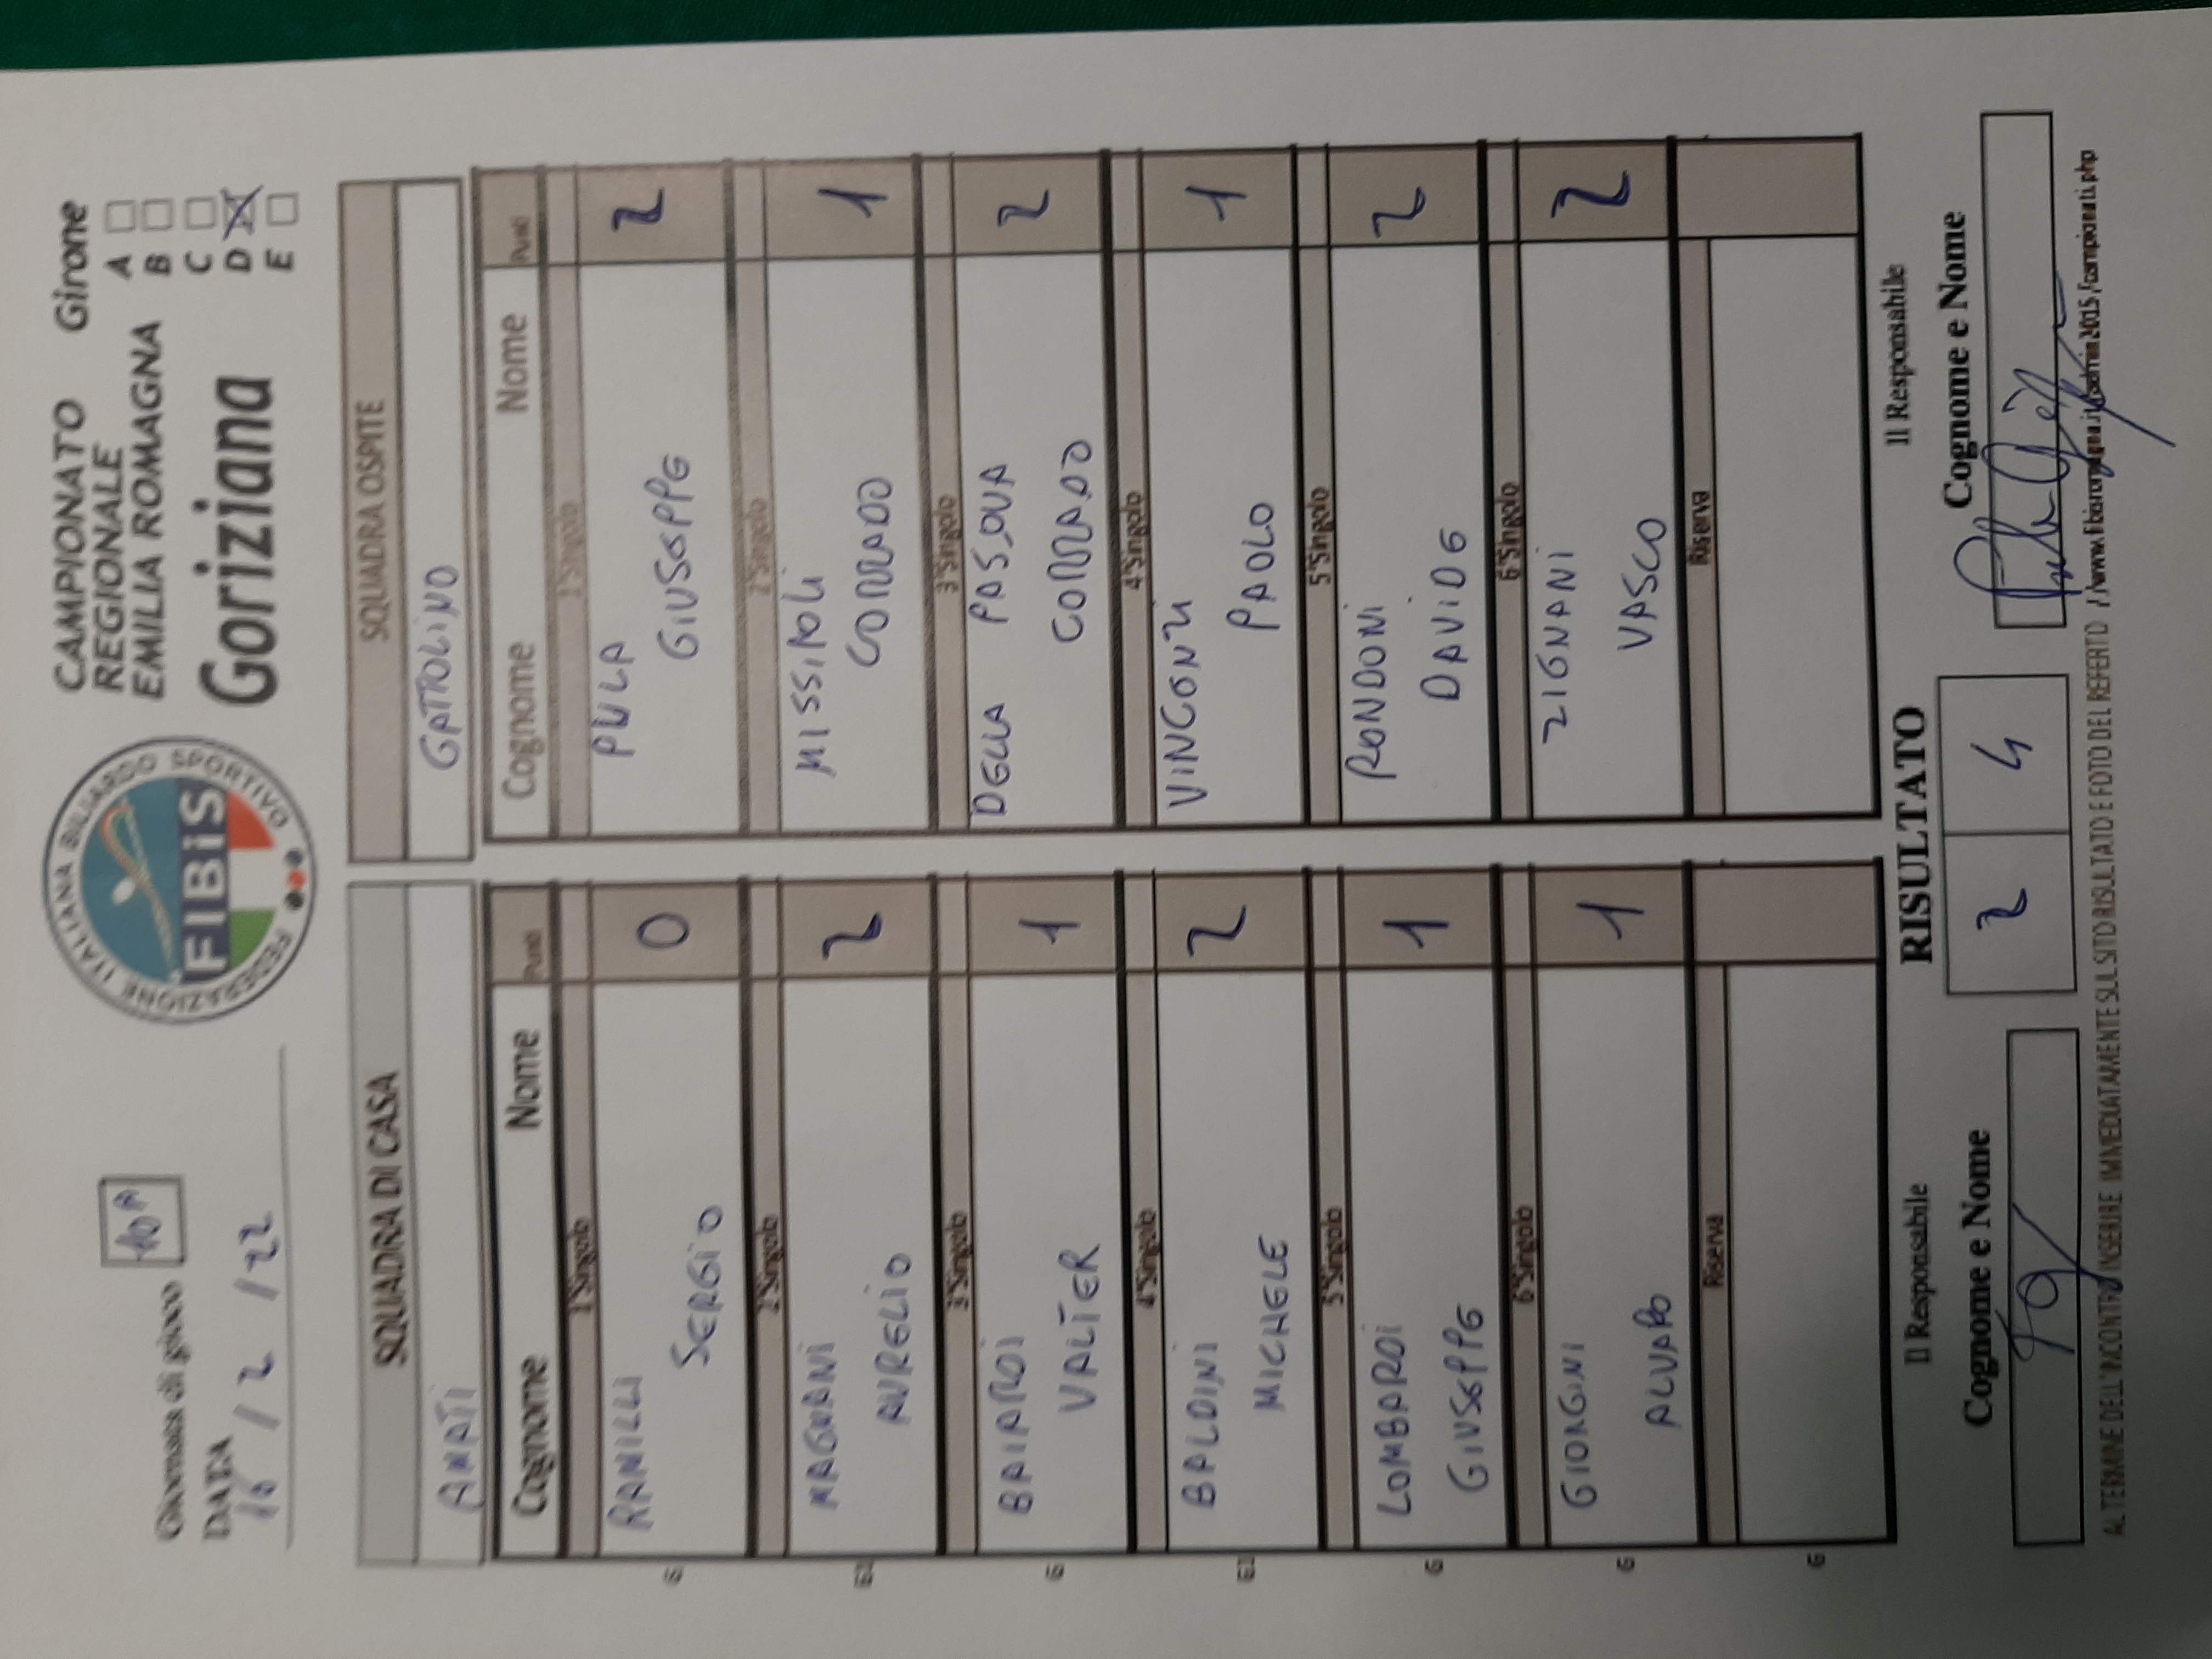 Giornata di gioco 10ª
DATA
16/2/22
FEDERAZIONE ITALIANA BILIARDO SPORTIVO
FIBiS
CAMPIONATO
REGIONALE
EMILIA ROMAGNA
Goriziana
Girone
A
B
C
D X
E
SQUADRA DI CASA
AMATI
Cognome Nome Punti
1°Singolo
RANILLI
SERGIO
0
2°Singolo
MAGNANI
AURELIO
2
3°Singolo
BAIARDI
VALTER
1
4°Singolo
BALDINI
MICHELE
2
5°Singolo
LOMBARDI
GIUSEPPE
1
6°Singolo
GIORGINI
ALVARO
1
Riserva
SQUADRA OSPITE
GATTOLINO
Cognome Nome Punti
1°Singolo
PULA
GIUSEPPE
2
2°Singolo
MISSIROLI
CORRADO
1
3°Singolo
DELLA PASQUA
CORRADO
2
4°Singolo
VINCENZI
PAOLO
1
5°Singolo
RONDONI
DAVIDE
2
6°Singolo
ZIGNANI
VASCO
2
Riserva
Il Responsabile
Cognome e Nome
RISULTATO
2 4
Il Responsabile
Cognome e Nome
AL TERMINE DELL'INCONTRO INSERIRE IMMEDIATAMENTE SUL SITO RISULTATO E FOTO DEL REFERTO